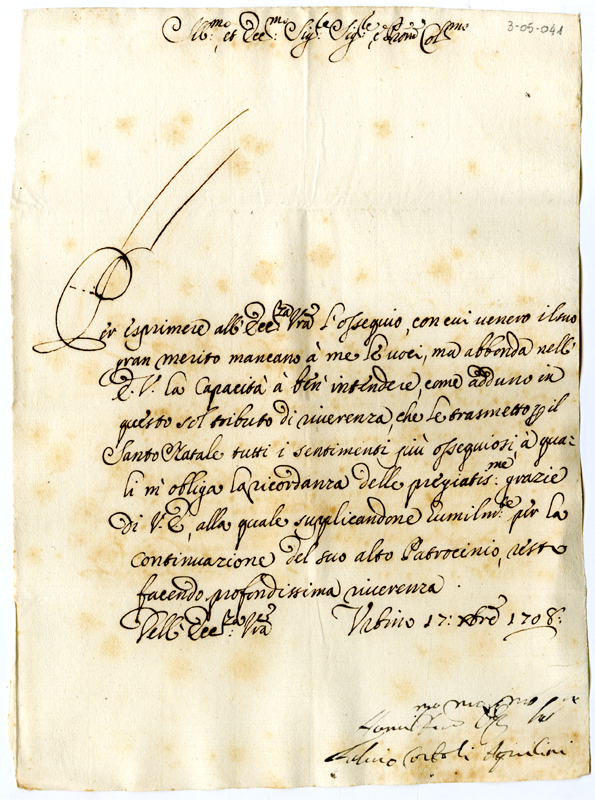 3-05-041
Ill:mo et Ecc:mo Sig:re Sig:re e Prone Col:mo
Per esprimere all'Ecc:za Vra l'ossequio, con cui venero il suo
gran merito mancano à me le voci, ma abbonda nell'
E.V. la Capacità à ben intendere, come adduno in
questo sol tributo di riverenza, che le trasmetto p il
Santo Natale tutti i sentimenti più ossequiosi, à qua-
li m'obliga la ricordanza delle pregiatis:me grazie
di V.E, alla quale supplicandone humilm:te per la
continuazione del suo alto Patrocinio, resto
facendo profondissima riverenza.
Dell'Ecc:za Vra Urbino 17: Xbre 1708: